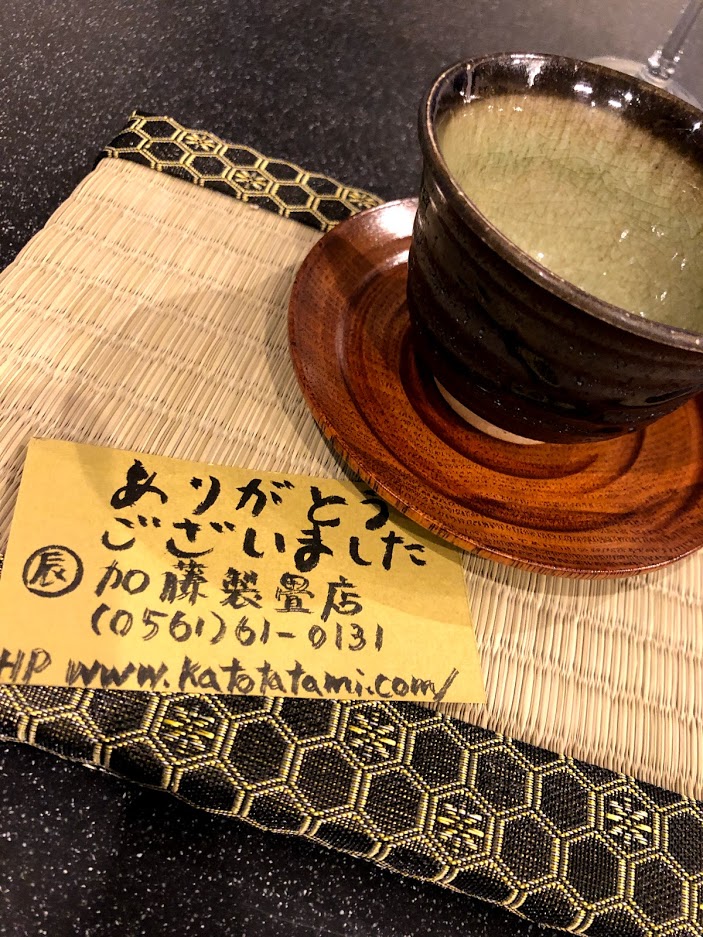 ありがとう
ございました
辰 加藤製畳店
(0561)61-0131
HP www.katotatami.com/